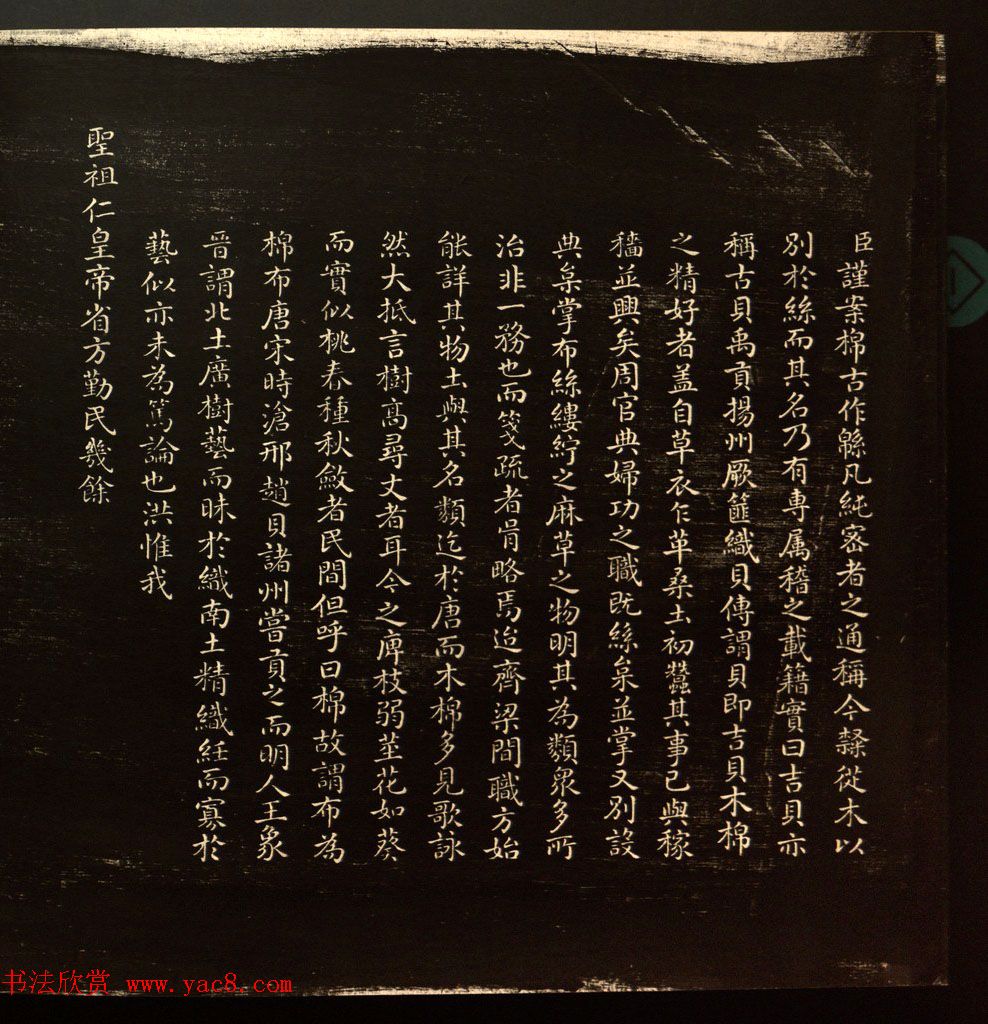 臣謹案棉古作緜凡純密者之通稱今隸從木以
別於絲而其名乃有専属稽之載籍實曰吉貝亦
稱古貝禹貢揚州厥篚織貝傳謂貝即吉貝木棉
之精好者盖自草衣乍革桑土初蠶其事已與稼
穡並興矣周官典婦功之職既絲枲並掌又別設
典枲掌布絲縷紵之麻草之物明其為類衆多所
治非一務也而箋疏者肙略焉迨齊梁間職方始
能詳其物土與其名類迄於唐而木棉多見歌詠
然大抵言樹髙尋丈者耳今之庳枝弱莖花如葵
而實似桃春種秋斂者民間但呼曰棉故謂布為
棉布唐宋時滄邢趙貝諸州嘗貢之而明人王象
晉謂北土廣樹藝而昧於織南土精織絍而寡於
藝似亦未為篤論也洪惟我
聖祖仁皇帝省方勤民幾餘
书法欣赏 www.yac8.com